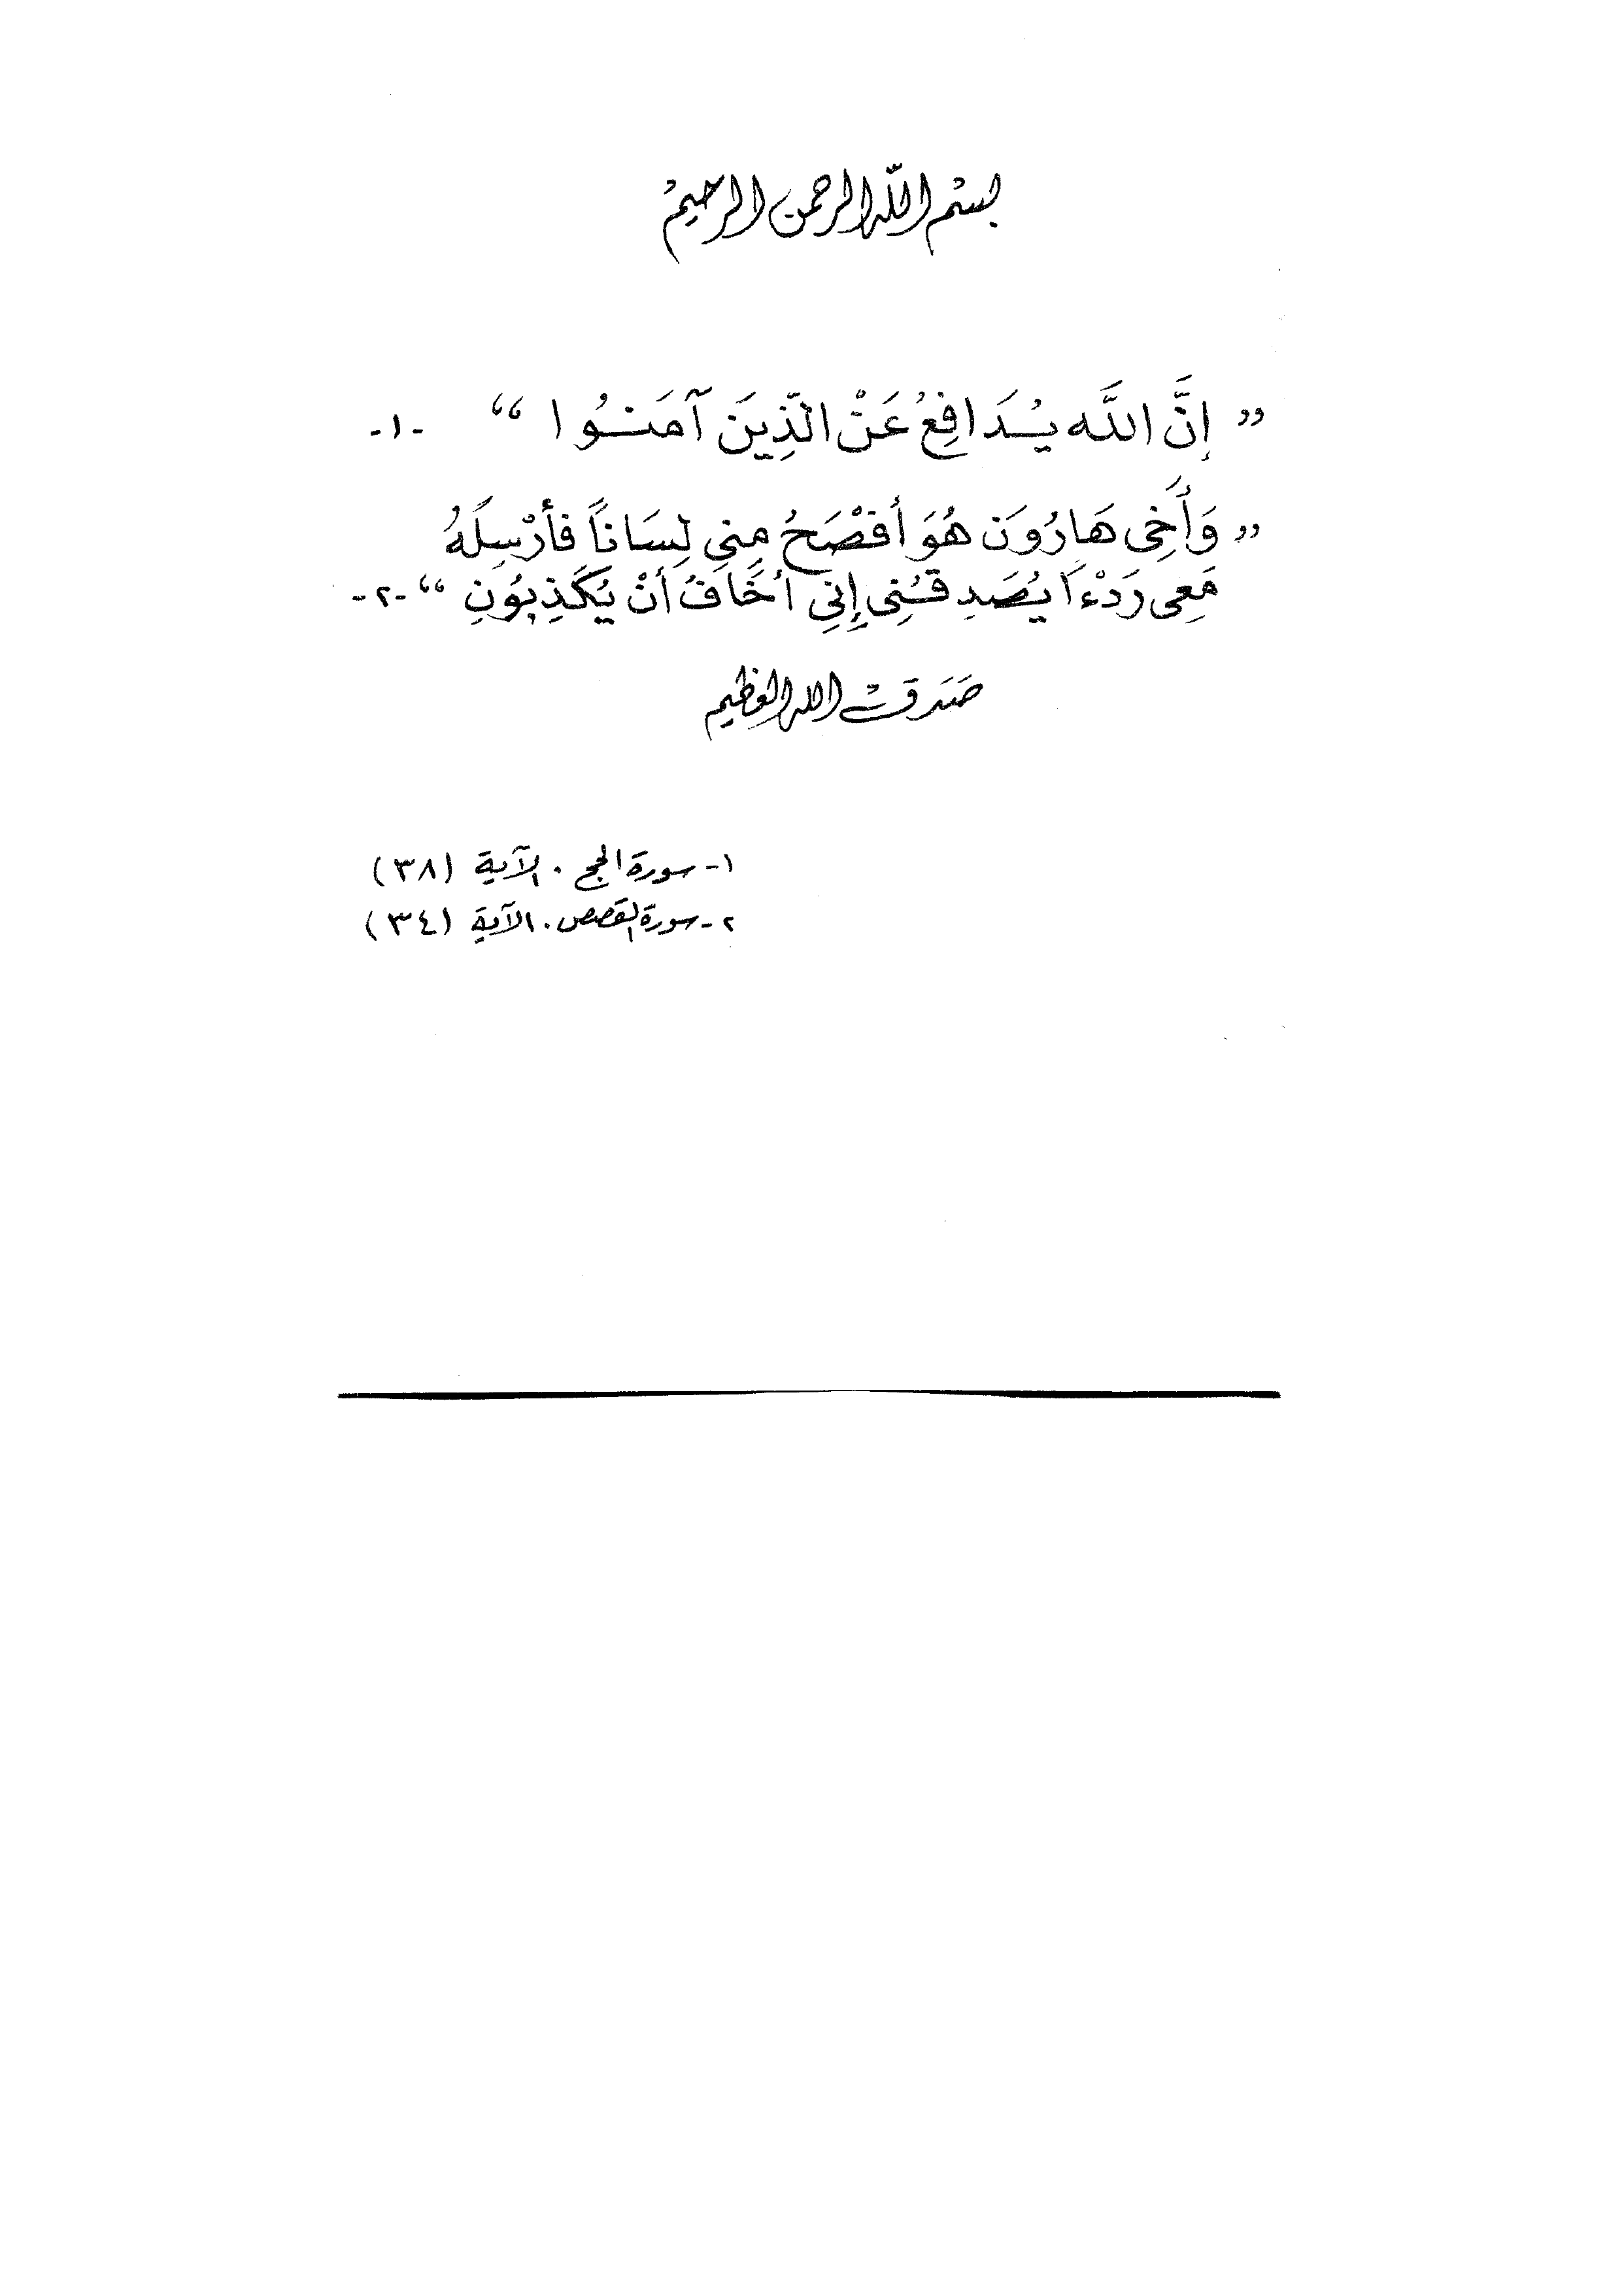 بسم الله الرحمن الرحيم
” إِنَّ اللَّه يُدَافِعُ عَنْ الَّذِينَ آمَنُوا “ -١-
” وَأَخِى هَارُونَ هُوَ أفْصَحُ مِنِى لِسَاناً فأرْسِلَهُ
مَعِى رَدْءاً يُصَدِقُنِى إِنِى أخَافُ أنْ يُكَذِبُونِ “ -٢-
صَدَقَ الله العظيم
١- سورة الحج . الآية (٣٨)
٢- سورة القصص . الآية (٣٤)